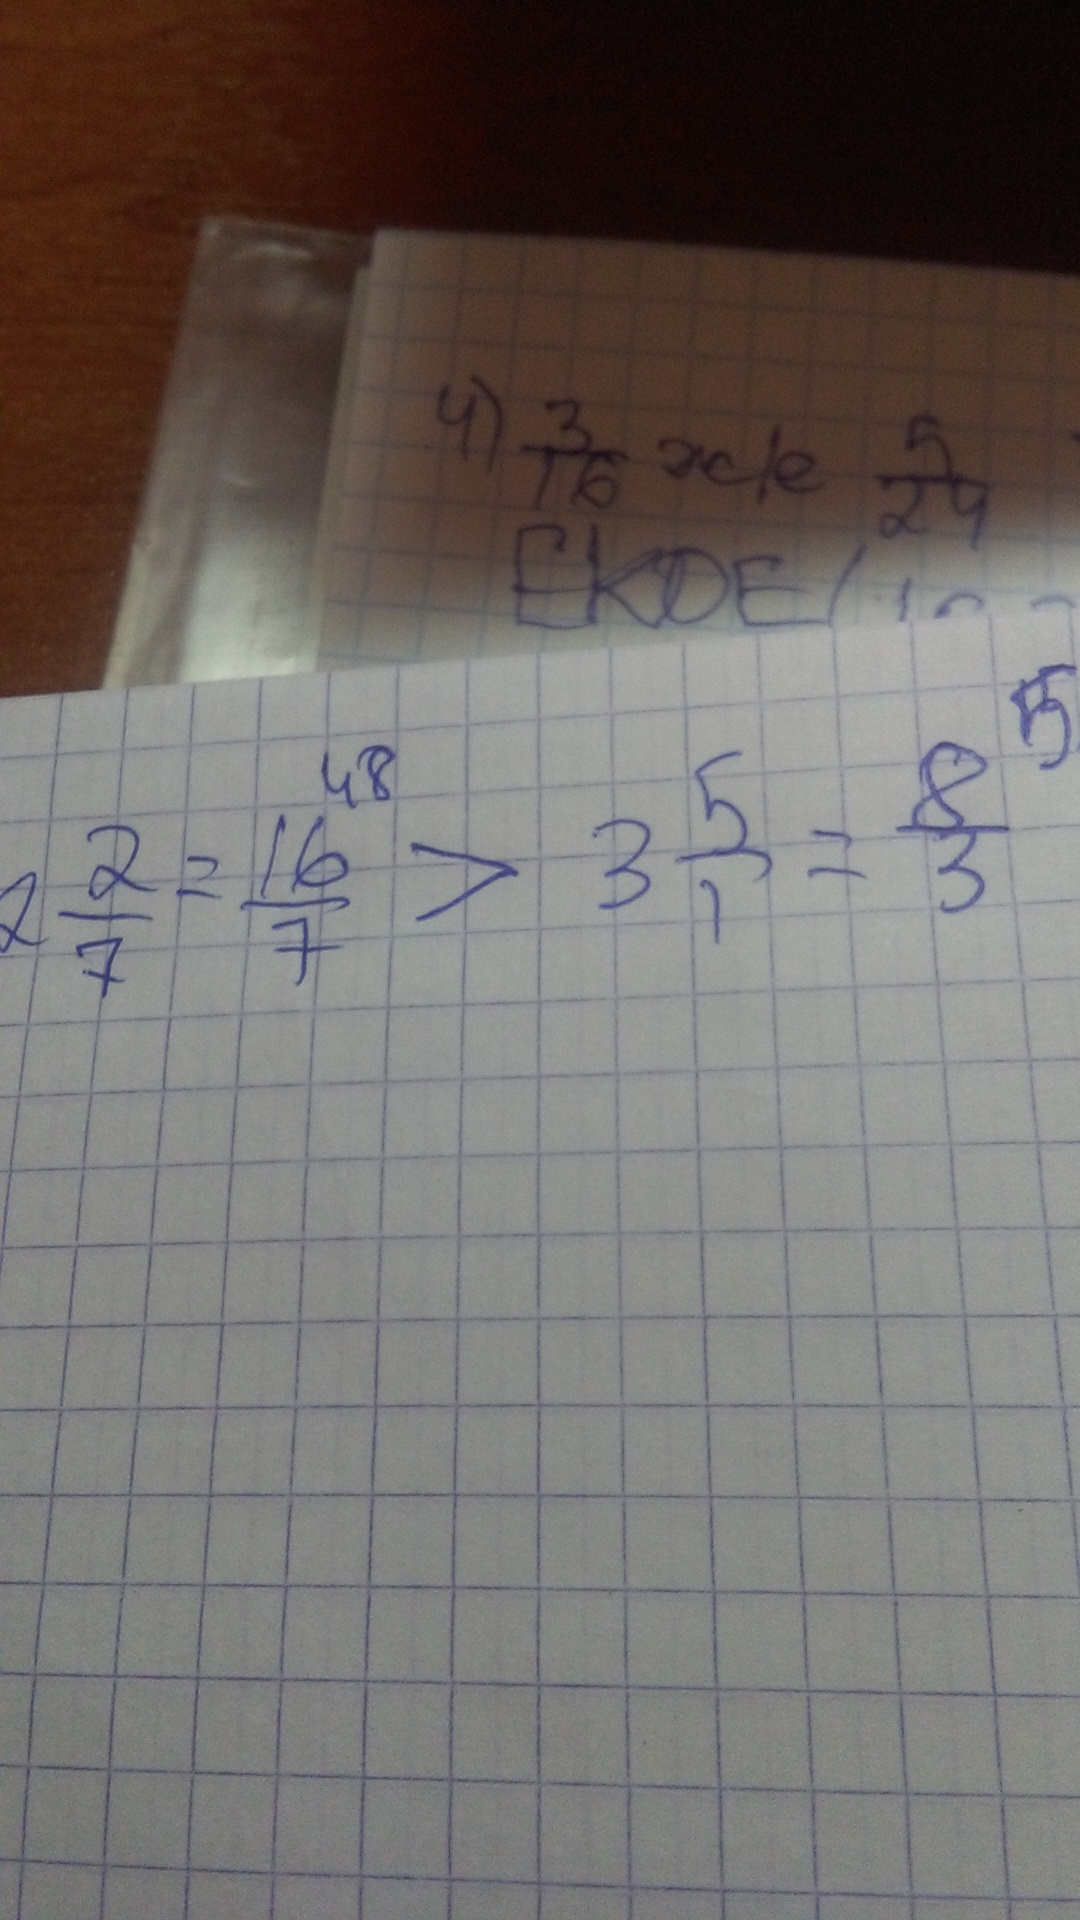 4) 3/16 ж/е 5/24
ЕКОЕ(
2 2/7 = 16/7 48 > 3 5/1 = 8/3